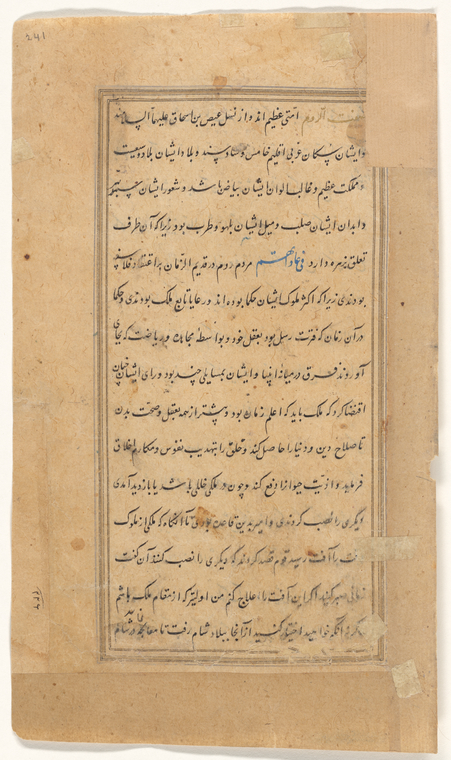 ۲۴۱
الروم امتی عظیم اند و از نسل عیص بن اسحاق علیهما السلام
و ایشان سکان غربی اقلیم خامس و سادسند و بلاد ایشان بلاد وسیعت
و مملکت عظیم و غالب الوان ایشان بیاض باشد و شعور ایشان
و ابدان ایشان صلب و میل ایشان بلهو و طرب بود زیرا که آن طرف
تعلق بزهره دارد فی عاداتهم مردم روم در قدیم الزمان بر اعتقاد فلاسفه
بودندی زیرا که اکثر ملوک ایشان حکما بوده‌اند و رعایا تابع ملک بودندی و حکما
در آن زمان که فترت رسل بود بعقل خود و بواسطه مجاهده و ریاضت که بجای
آوردند فرق در میانه انبیا و ایشان بمسایلی چند بود و رای ایشان چنان
اقتضا کرد که ملک باید که اعلم زمان بود و پیشتر از همه بعقل و صحت بدن
تا صلاح دین و دنیا را حاصل کند و خلق را بتهذیب نفوس و مکارم اخلاق
فرماید و اذیت حیوان دفع کند و چون در ملکی خللی باشد یا بازدید آمدی
دیگری را نصب کردندی و امیر بدین قاعده بودی تا آنگاه که ملکی از ملوک
را آفت رسید قوم قصد کردند که دیگری را نصب کنند آن گفت
زمانی صبر کنید اگر این آفت را علاج کنم من اولیتر که از مقام ملک باشم
و گرنه آنکه خواهید اختیار کنید از آنجا ببلاد شام رفت تا معالجه در شام